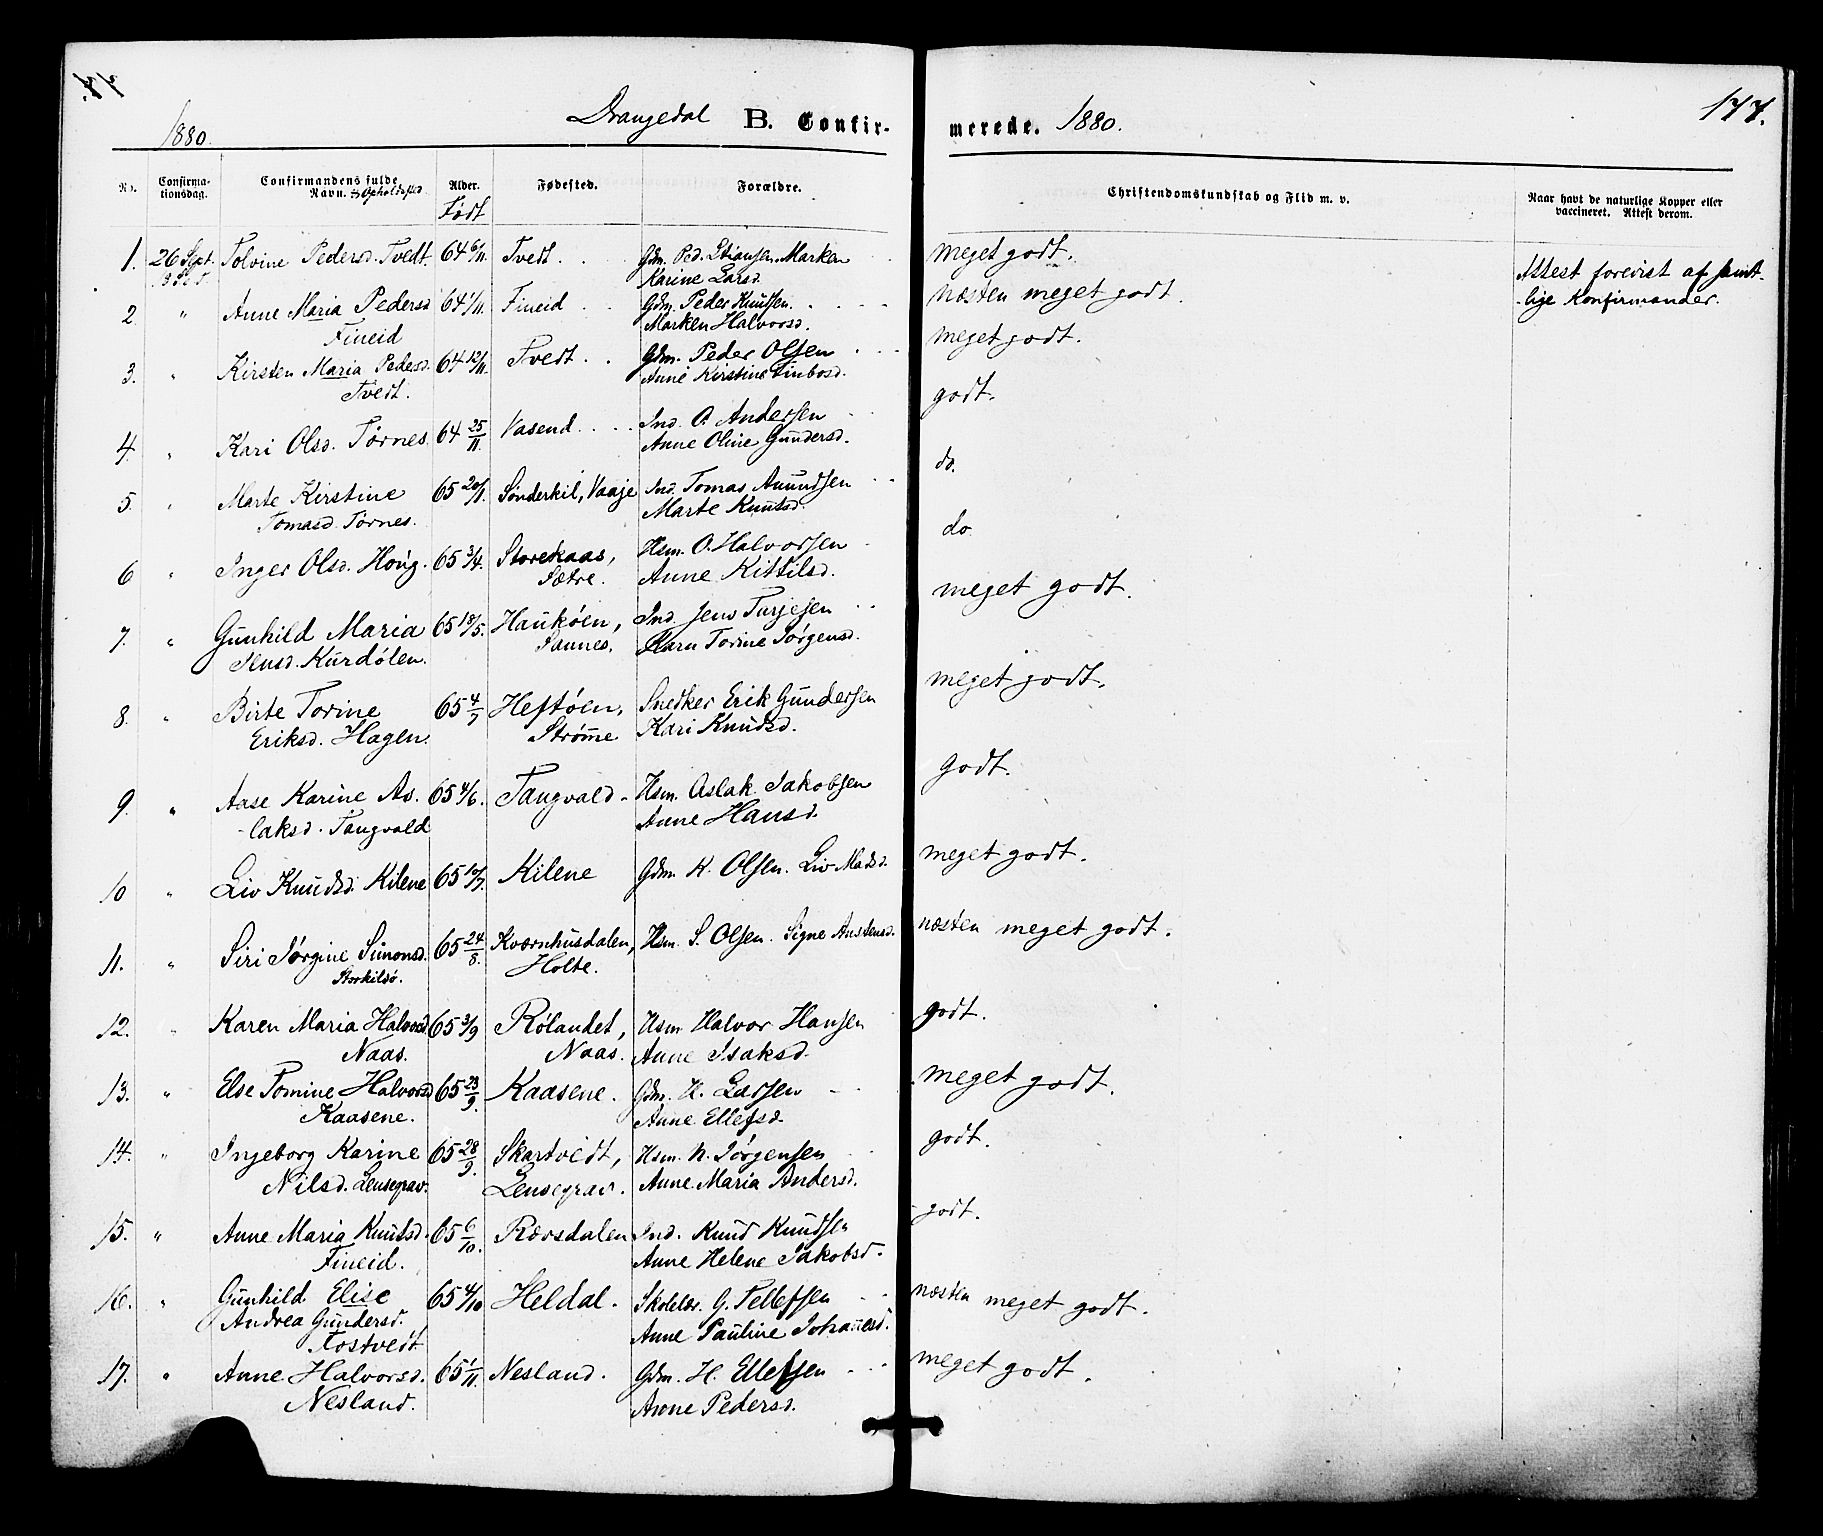 1880. Drangedal B. Confir-merede. 1880. 177.
No. Confirma-tionsdag. Confirmandens fulde Navn. & Opholdssted Alder. Født Fødested. Forældre. Christendomskundskab og Flid m. v. Naar havt de naturlige Kopper eller vaccineret. Attest derom.
1. 26 Sept. Tolvine Pedersd. Tvedt. 64 6/11. Tvedt. Gdm. Ped. Stiansen. Marken meget godt. Attest forevist af samt-
Karine Larsd. -lige Konfirmander.
2 " Anne Maria Pedersd 64 1/11. Fineid Gdm. Peder Knudsen. næsten meget godt.
Fineid Marken Halvorsd.
3. " Kirsten Maria Pedersd. 64 12/11. Tvedt. Gdm. Peder Olsen meget godt.
Tvedt. Anne Kirstine Finbosd.
4. " Kari Olsd. Törnes. 64 25/11. Vasend. Ind. O. Andersen godt.
Anne Oline Gundersd.
5. " Marte Kirstine 65 20/1. Sönderkil, Vaaje Ind. Tomas Amundsen do.
Tomasd. Törnes. Marte Knutsd.
6 " Inger Olsd. Houg. 65 3/4. Storekaas, Hsm. O. Halvorsen do
Sætre. Anne Kittilsd.
7. " Gunhild Maria 65 18/5. Haukøen, Ind. Jens Turjesen meget godt.
Jensd. Kurdølen. Sannes. Karn Torine Jørgensd.
8. " Birte Torine 65 4/7 Heftøen, Snedker Erik Gundersen meget godt.
Eriksd. Hagen. Strømme Kari Knudsd.
9. " Aase Karine As- 65 4/6. Tangvald Hsm. Aslak Jakobsen godt.
-laksd. Tangvald Anne Hansd.
10 " Liv Knudsd. Kilene 65 10/7. Kilene Gdm. K. Olsen. Liv Madsd. meget godt.
11. " Siri Jørgine Simonsd. 65 24/8. Kværnhusdalen, Hsm. S. Olsen. Signe Anstensd. næsten meget godt.
Storkilsö. Holte.
12. " Karen Maria Halvorsd 65 3/9 Rølandet, Hsm Halvor Hansen godt.
Naas. Naas. Anne Isaksd.
13. " Else Tomine Halvorsd 65 23/9. Kaasene. Gdm. H. Larsen meget godt.
Kaasene. Anne Ellefsd.
14. " Ingeborg Karine 65 28/9. Skartvedt, Hsm. N. Jørgensen godt.
Nilsd. Lensegrav. Lensegrav. Anne Maria Andersd.
15. " Anne Maria Knutsd. 65 6/10. Rærsdalen Ind. Knud Knudsen godt.
Fineid. Anne Helene Jakobsd.
16. " Gunhild Elise 65 4/10 Heldal. Skolelær. G. Tellefsen næsten meget godt.
Andrea Gundersd. Anne Pauline Johannesd.
Tostvedt
17. " Anne Halvorsd. 65 1/11. Nesland. Gdm. H. Ellefsen meget godt.
Nesland. Anne Pedersd.